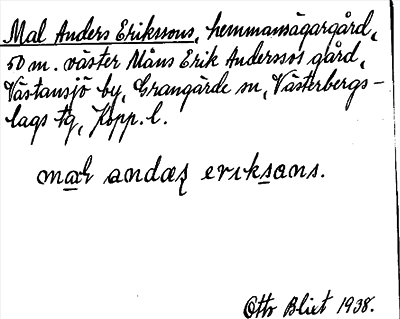 Mal Anders Erikssons, hemmansägargård,
50 m. väster Måns Erik Anderssos gård,
Västansjö by, Grangärde sn, Västerbergs-
lags tg, Kopp. l.
mal andæʂ eriksɑns.
Otto Blixt 1938.